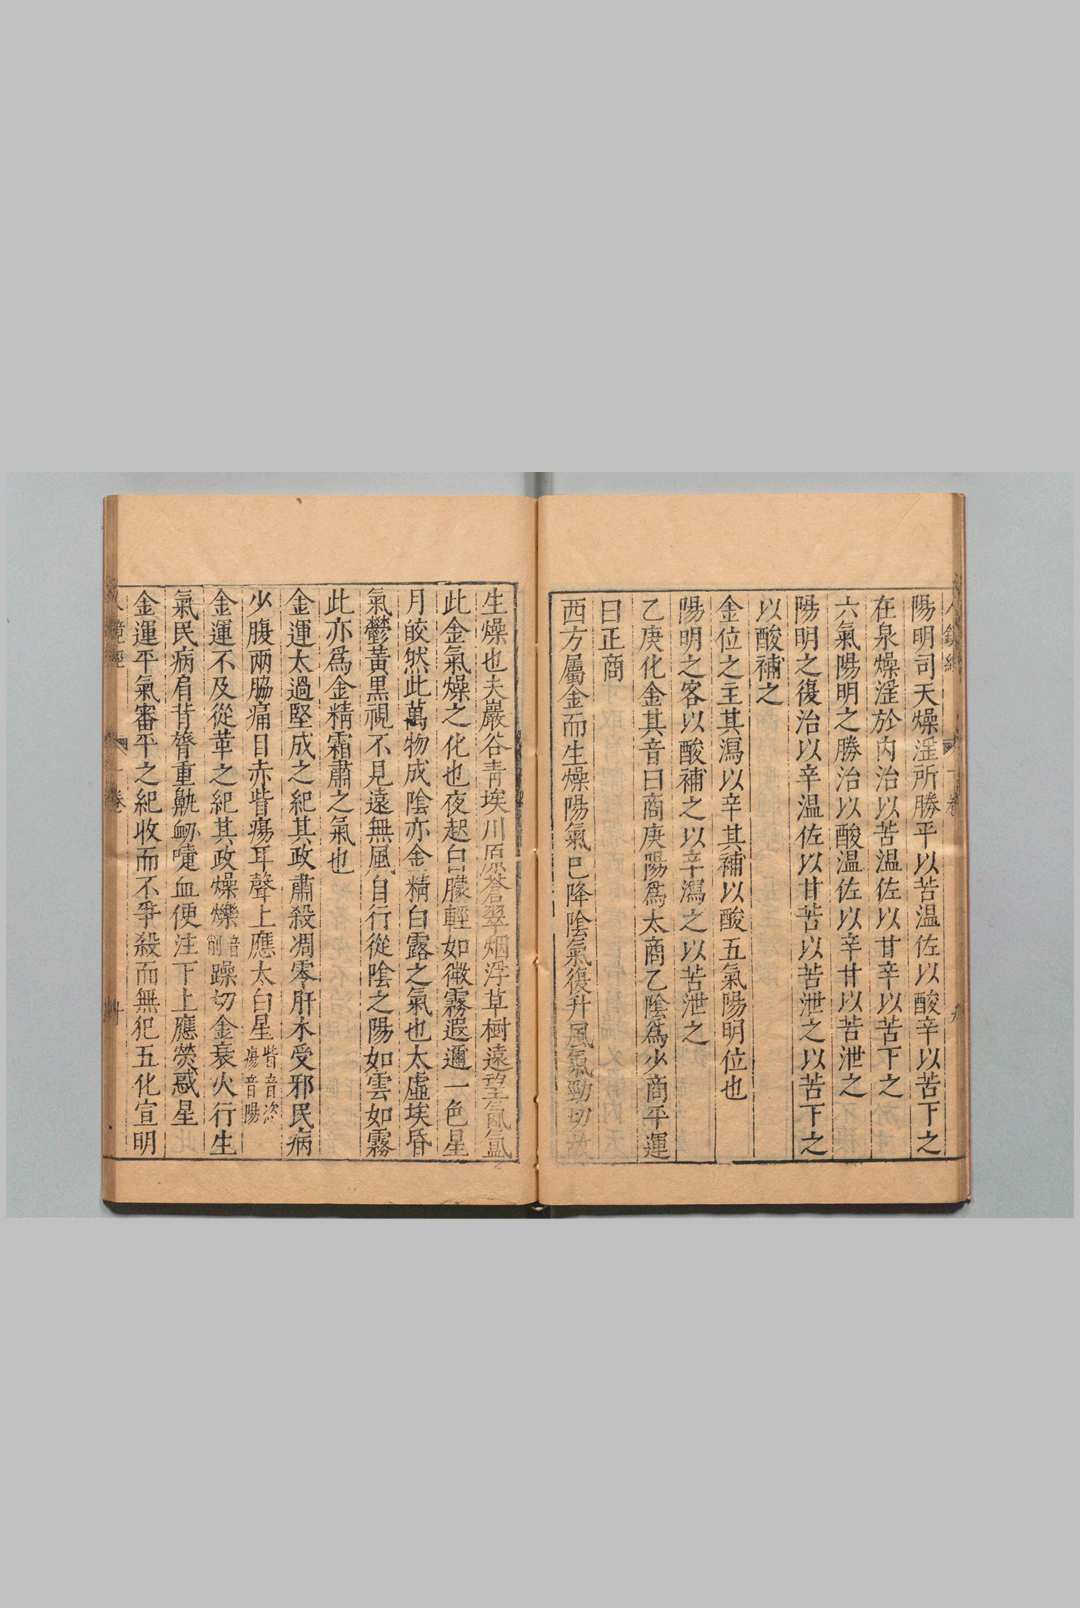 陽明司天燥淫所勝平以苦温佐以酸辛以苦下之
在泉燥淫於內治以苦温佐以甘辛以苦下之
六氣陽明之勝治以酸温佐以辛甘以苦泄之
陽明之復治以辛温佐以甘苦以苦泄之以苦下之
以酸補之
金位之主其瀉以辛其補以酸五氣陽明位也
陽明之客以酸補之以辛瀉之以苦泄之
乙庚化金其音曰商庚陽爲太商乙陰爲少商平運
曰正商
西方屬金而生燥陽氣已降陰氣復升風氣勁切故
生燥也夫巖谷青埃川原蒼翠烟浮草樹遠望氤氳
此金氣燥之化也夜起白朦輕如微霧遐邇一色星
月皎然此萬物成陰亦金精白露之氣也太虛埃昏
氣鬱黃黑視不見遠無風自行從陰之陽如雲如霧
此亦爲金精霜肅之氣也
金運太過堅成之紀其政肅殺凋零肝木受邪民病
少腹兩脇痛目赤眥瘍耳聾上應太白星眥音次瘍音陽
金運不及從革之紀其政燥爍音削躁切金衰火行生
氣民病肩背瞀重鼽衂嚏血便注下上應熒惑星
金運平氣審平之紀收而不爭殺而無犯五化宣明
人鏡經
卷